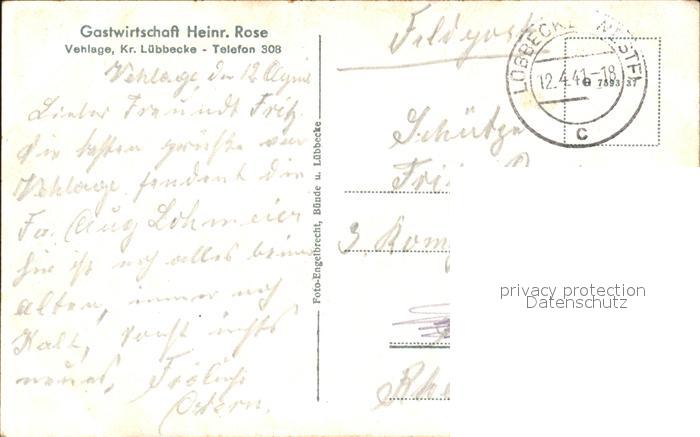 Gastwirtschaft Heinr. Rose
Vehlage, Kr. Lübbecke - Telefon 308
Vehlage, den 12 April
Lieber Freundt Fritz.
die besten grüße von
Vehlage sendent dir
Fa. Aug Lohmeier
hir ist noch alles beim
alten, immer noch
Kalt, sonst nichts
neues, Fröliche
Ostern.
Foto-Engelbrecht, Bünde u. Lübbecke
Feldpost
LÜBBECKE (WESTF)
12.4.41-18
C
7593 37
Schütze
3. Komp
Rhe
privacy protection
Datenschutz